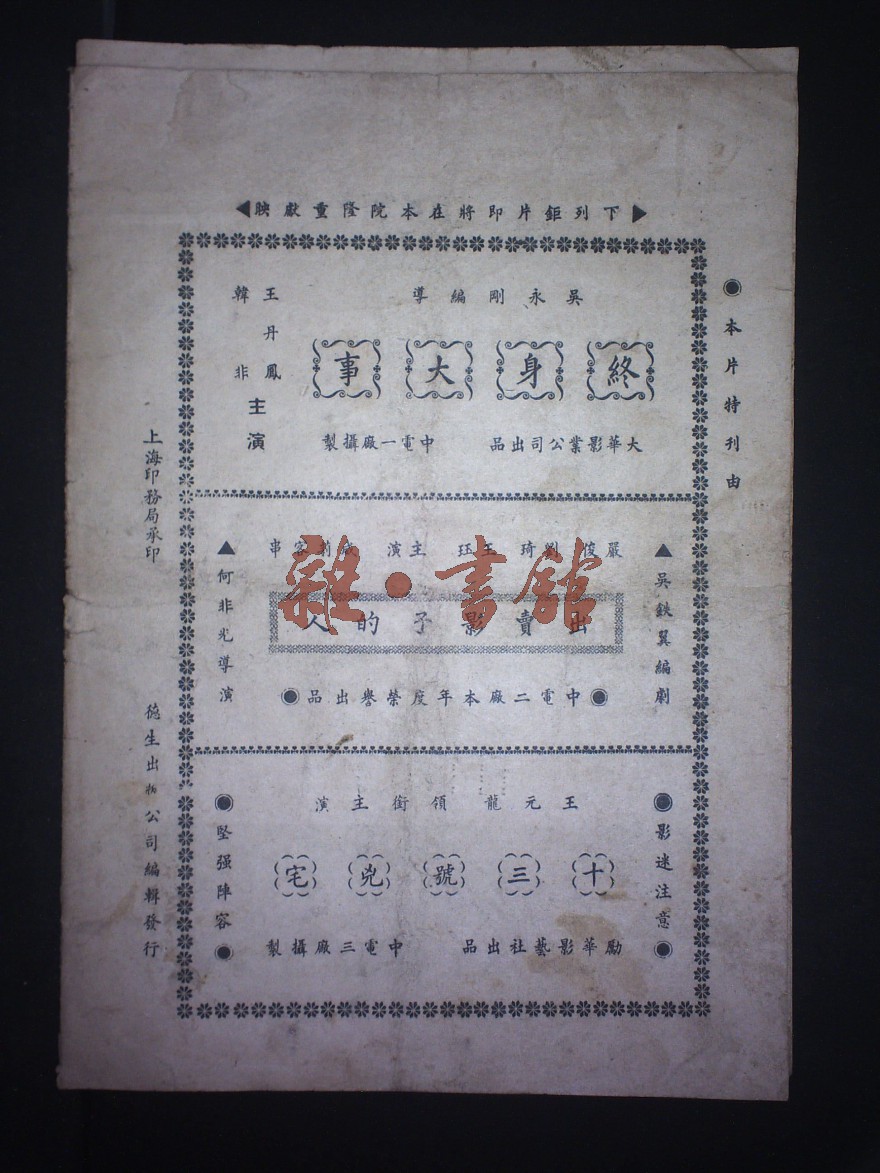 ●本片特刊由
▶下列鉅片即將在本院隆重獻映◀
吳永剛編導
終身大事
王丹鳳
韓非
主演
大華影業公司出品 中電一廠攝製
▲吳鉄翼編劇
嚴俊 劉琦 王珏 主演 客串
出賣影子的人
●中電二廠本年度榮譽出品●
▲何非光導演
●影迷注意●
王元龍領銜主演
十三號兇宅
勵華影藝社出品 中電三廠攝製
●堅强陣容●
上海印務局承印
德生出版公司編輯發行
雜·書館